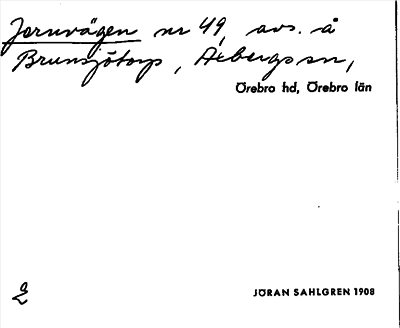 Jernvägen nr 49, avs. å
Brunsjötorp, Axbergs sn,
Örebro hd, Örebro län
JÖRAN SAHLGREN 1908